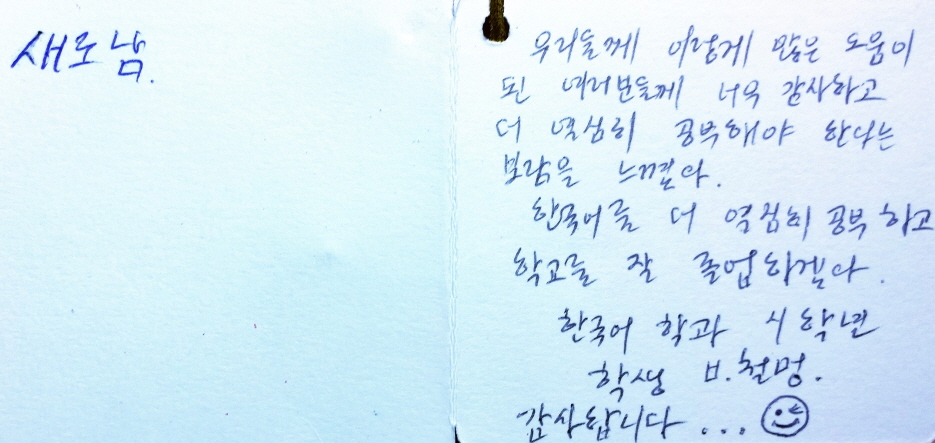 새로남.
우리들께 이렇게 많은 도움이
된 여러분들께 너무 감사하고
더 열심히 공부해야 한다는
보람을 느꼈다.
한국어를 더 열심히 공부하고
학교를 잘 졸업하겠다.
한국어 학과 시학년
학생 ㅂ.철멍.
감사합니다...